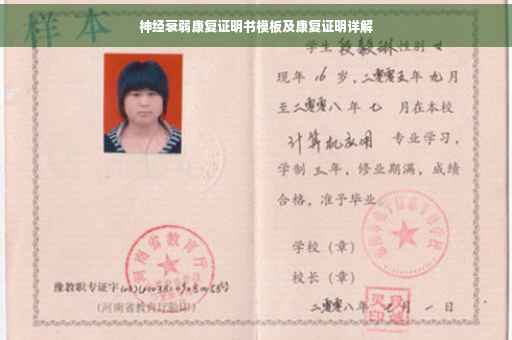 神经衰弱康复证明书模板及康复证明详解
样本
学生段毅琳性别女
现年16岁，二零零五年九月
至二零零八年七月在本校
计算机应用 专业学习，
学制三年，修业期满，成绩
合格，准予毕业。
学校（章）
校长（章）
二零零八年 月一日
河南省教育厅
豫教职专证字
（河南省教育厅验印）